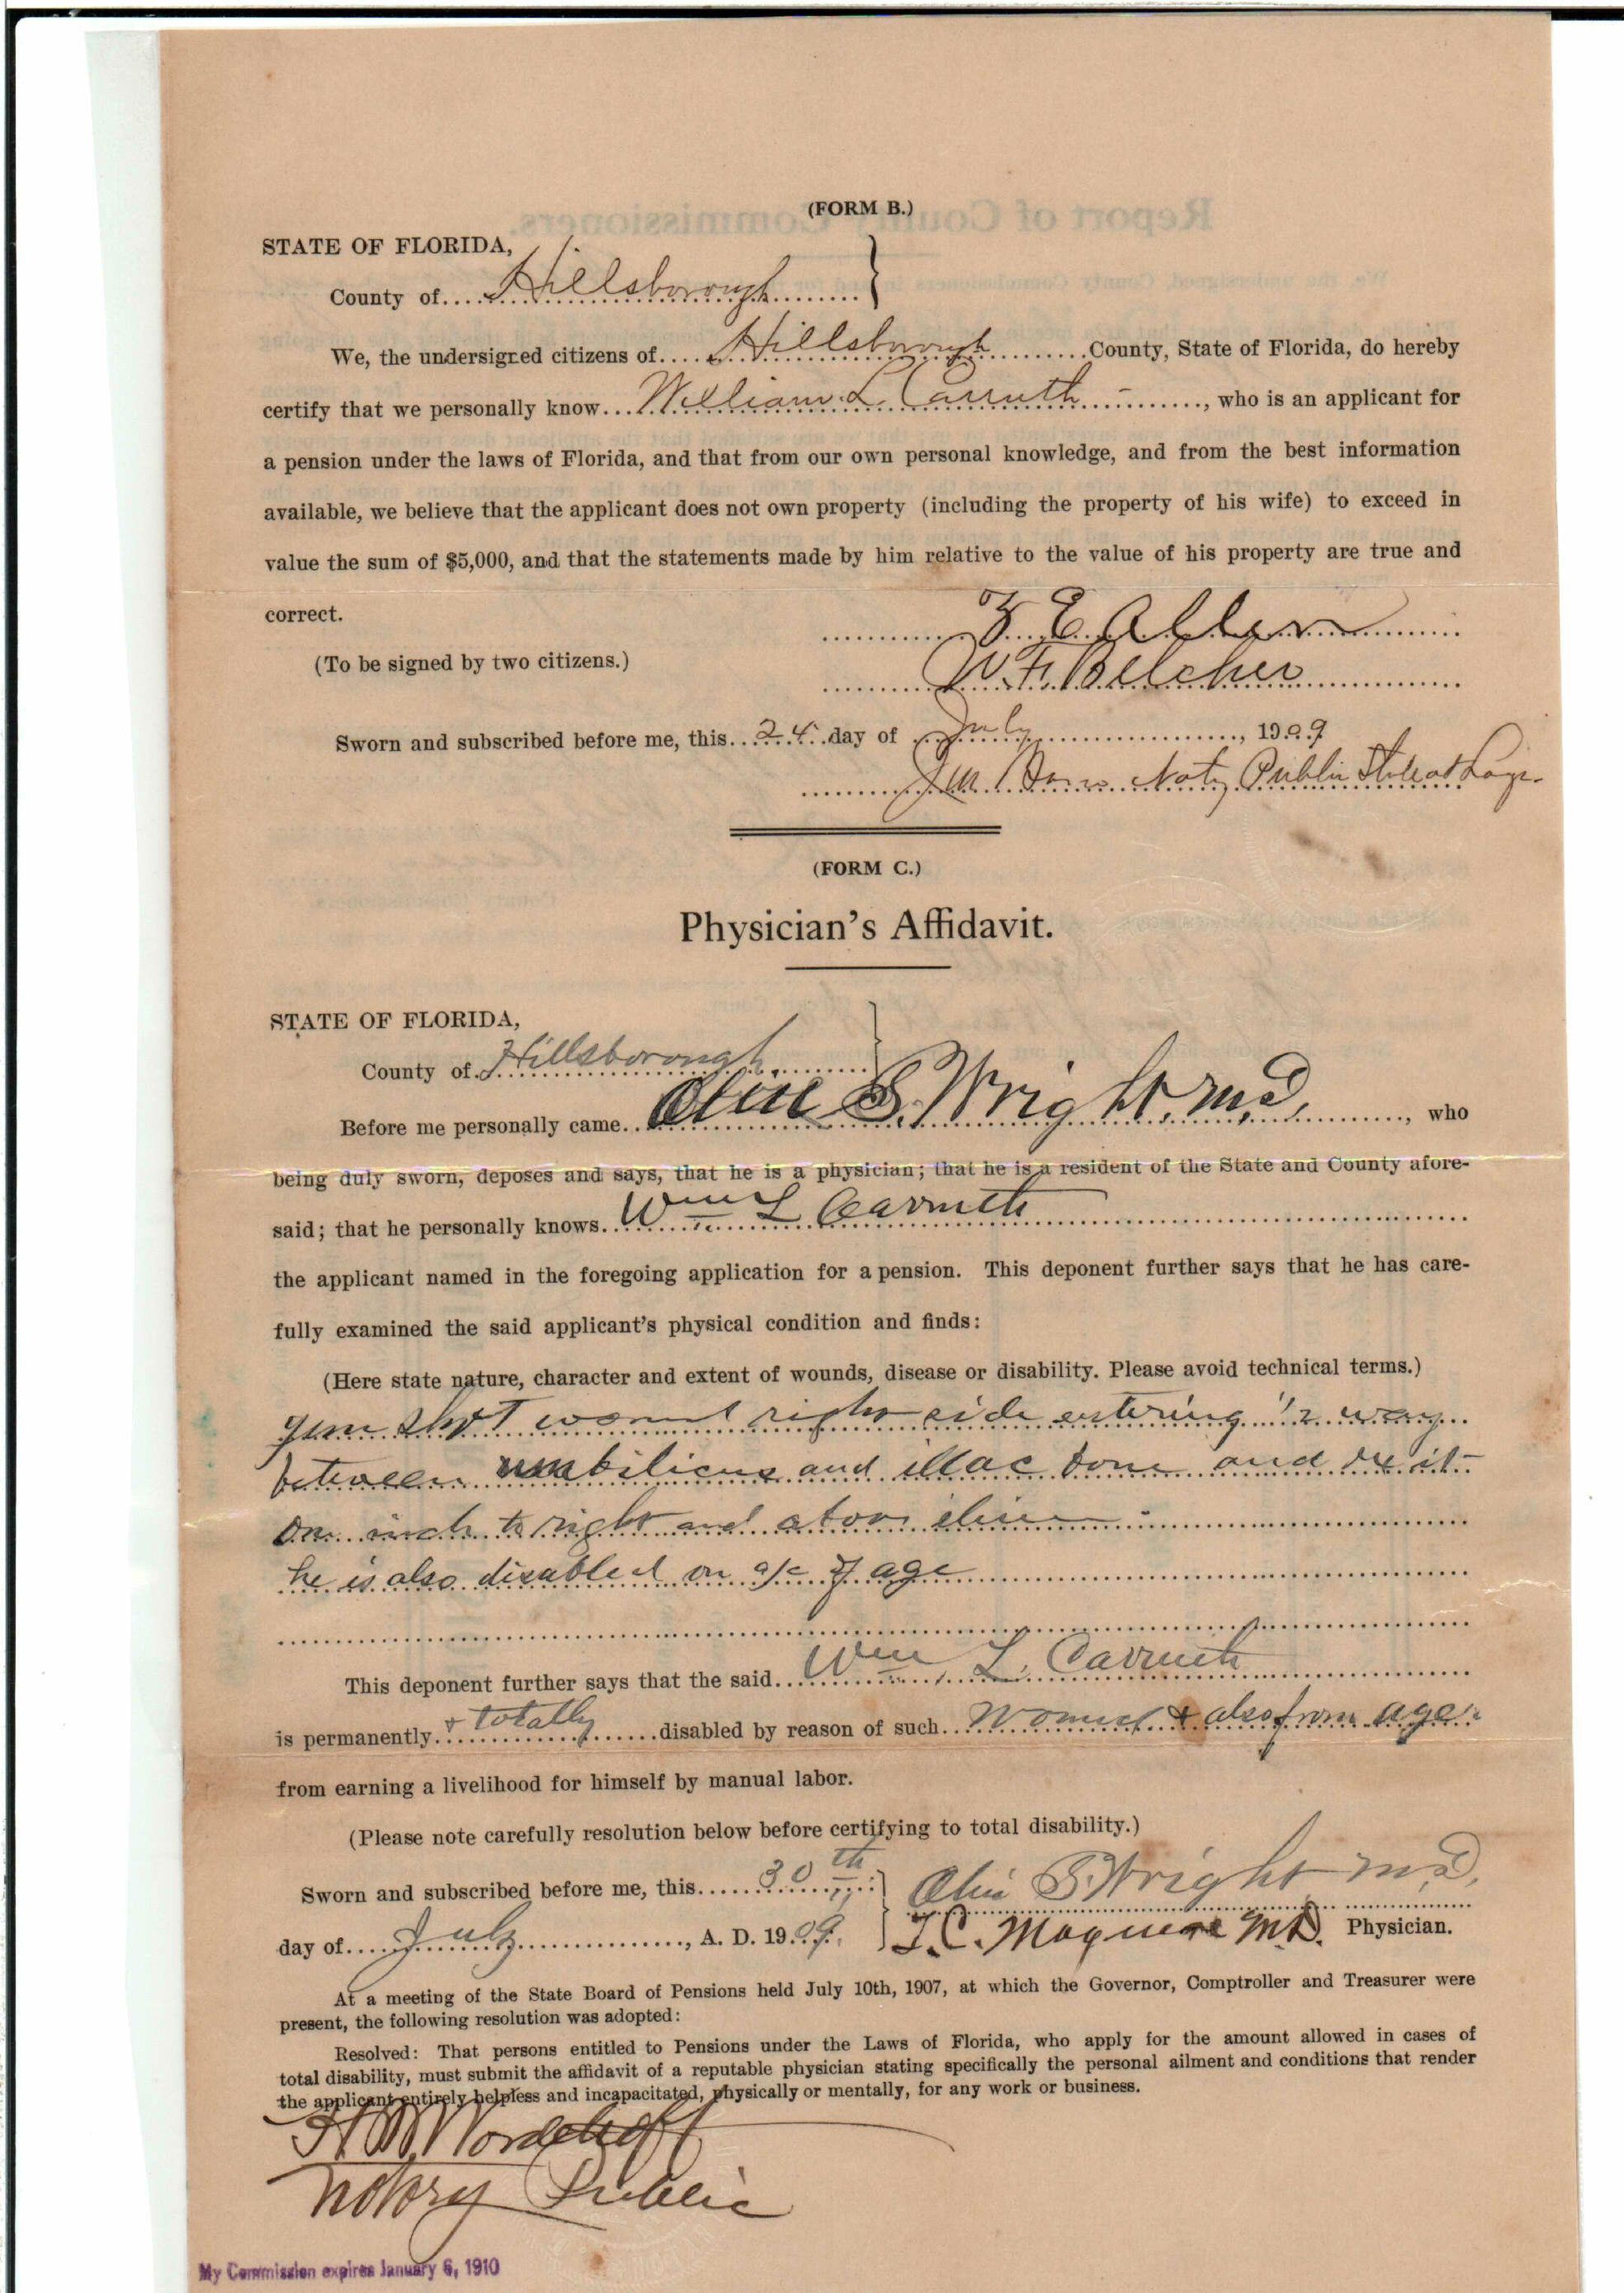 (FORM B.)
STATE OF FLORIDA,
County of Hillsborough
We, the undersigned citizens of Hillsborough County, State of Florida, do hereby
certify that we personally know William L. Carruth, who is an applicant for
a pension under the laws of Florida, and that from our own personal knowledge, and from the best information
available, we believe that the applicant does not own property (including the property of his wife) to exceed in
value the sum of $5,000, and that the statements made by him relative to the value of his property are true and
correct.
E Allen
(To be signed by two citizens.)
W. F. Belcher
Sworn and subscribed before me, this 24 day of July, 1909
Notary Public State at Large
(FORM C.)
Physician's Affidavit.
STATE OF FLORIDA,
County of Hillsborough
Before me personally came Olin S. Wright. M.D., who
being duly sworn, deposes and says, that he is a physician; that he is a resident of the State and County afore-
said; that he personally knows Wm L Carruth
the applicant named in the foregoing application for a pension. This deponent further says that he has care-
fully examined the said applicant's physical condition and finds:
(Here state nature, character and extent of wounds, disease or disability. Please avoid technical terms.)
gun shot wound right side entering 1/2 way
between umbilicus and illac bone and exit
one inch to right and above
he is also disabled on a/c of age
This deponent further says that the said Wm L. Carruth
is permanently & totally disabled by reason of such Wound & also from age
from earning a livelihood for himself by manual labor.
(Please note carefully resolution below before certifying to total disability.)
Sworn and subscribed before me, this 30th
Olin S. Wright M.D.
day of July, A. D. 1909.
T. C. Maguire M.D. Physician.
At a meeting of the State Board of Pensions held July 10th, 1907, at which the Governor, Comptroller and Treasurer were
present, the following resolution was adopted:
Resolved: That persons entitled to Pensions under the Laws of Florida, who apply for the amount allowed in cases of
total disability, must submit the affidavit of a reputable physician stating specifically the personal ailment and conditions that render
the applicant entirely helpless and incapacitated, physically or mentally, for any work or business.
Notary Public
My Commission expires January 6, 1910